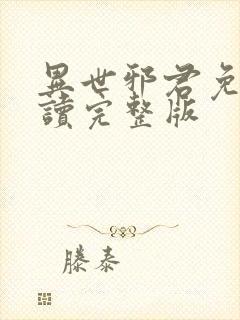 異世邪君免
讀完整版
滕泰